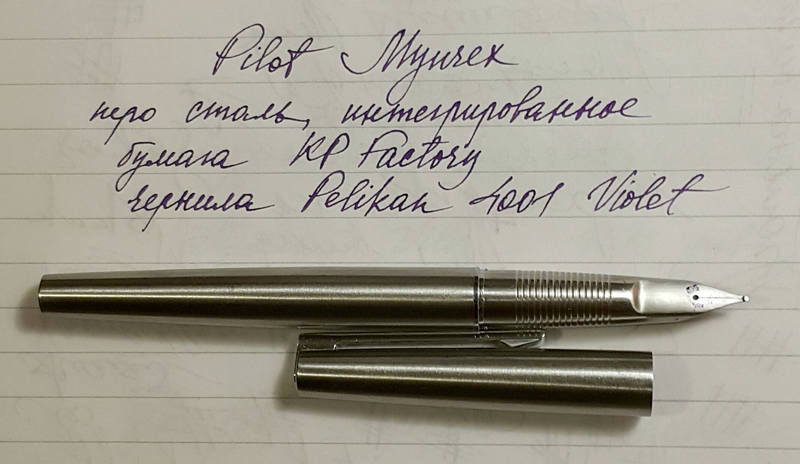 Pilot Мунчех
перо сталь, интегрированное
бумага KP Factory
чернила Pelikan 4001 Violet